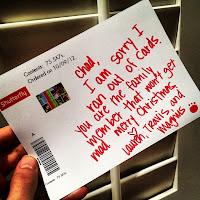 Shutterfly
Contents: 75 5X7s
Ordered on 10/09/12
A
Chad,
I am sorry I
ran out of cards.
You are the family
member that won't get
mad. Merry Christmas,
Lauren, Travis and
Magnus